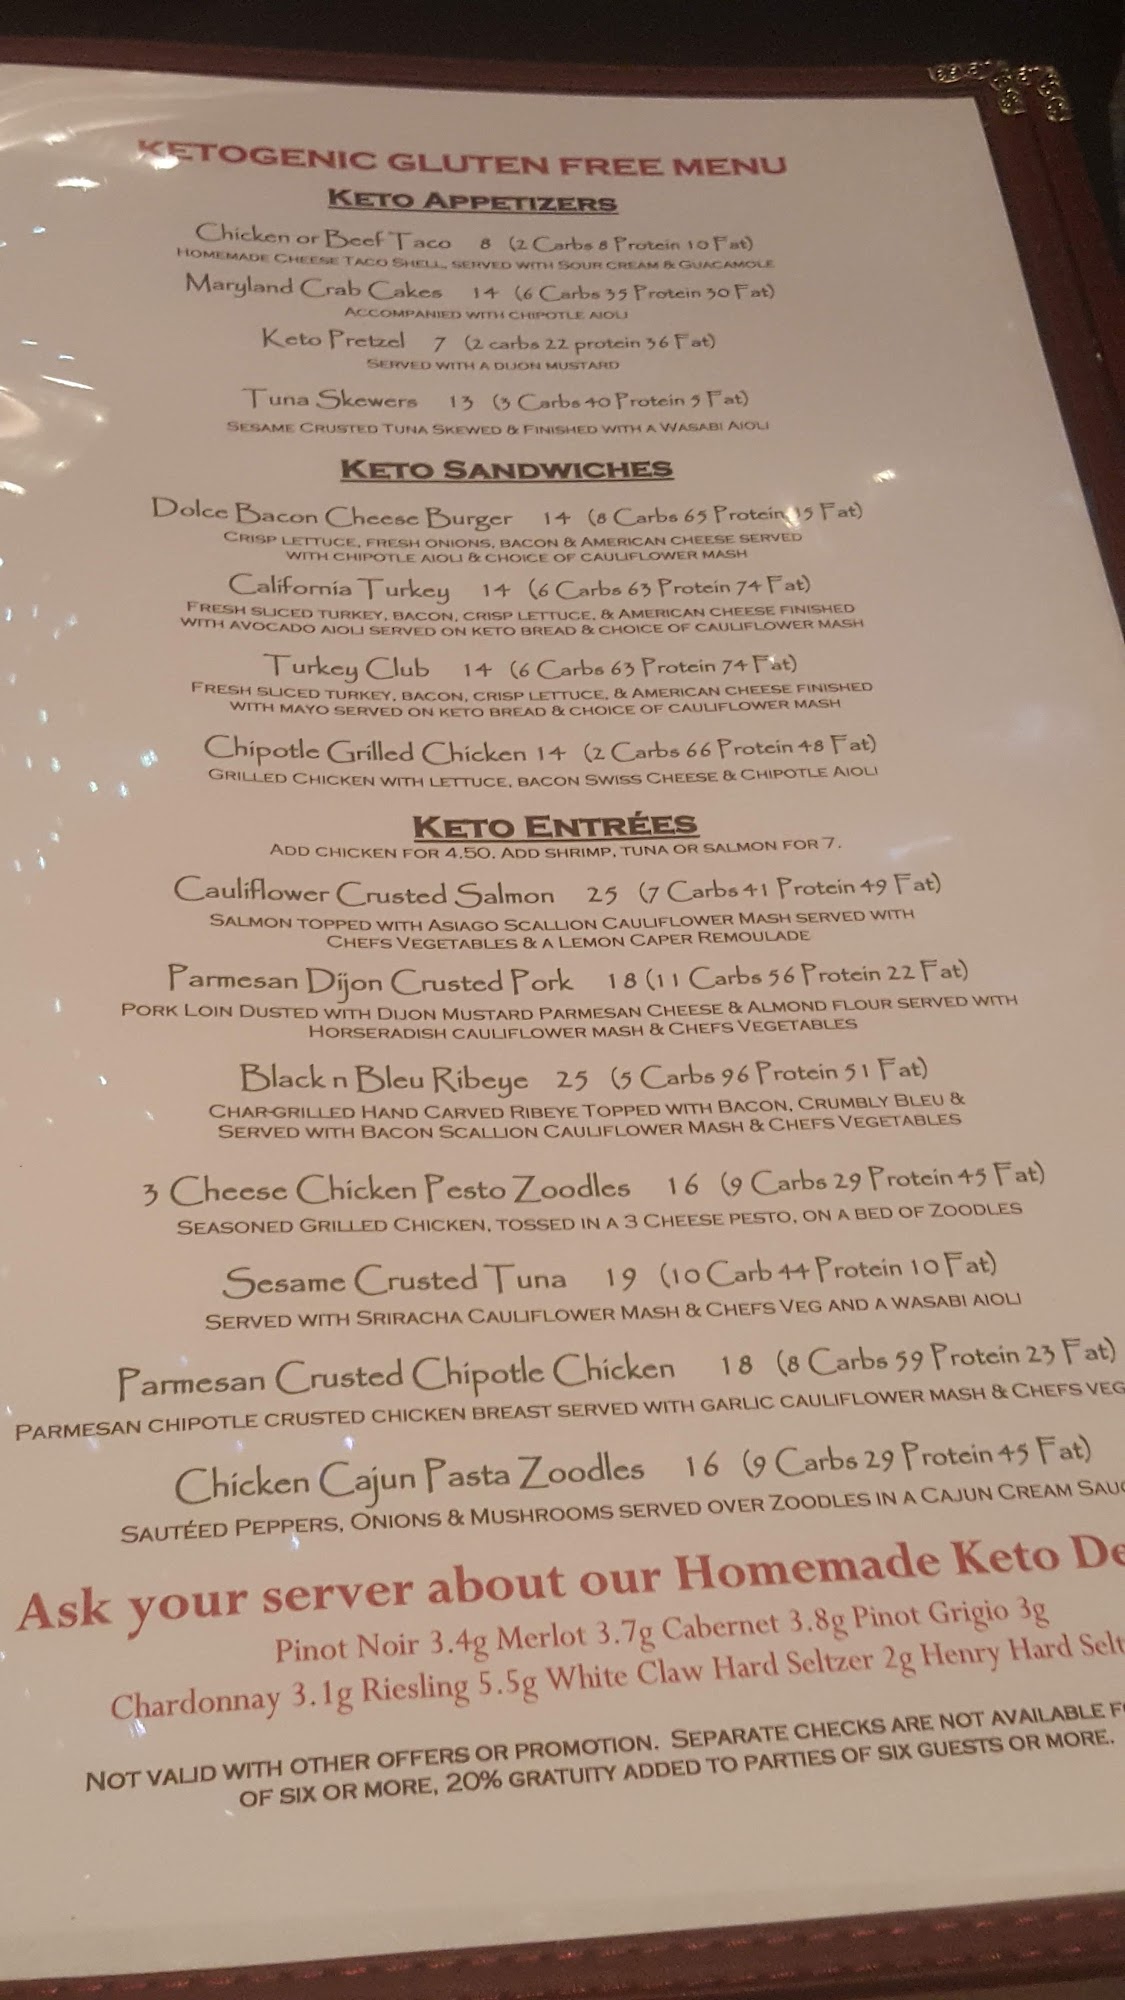 KETOGENIC GLUTEN FREE MENU
KETO APPETIZERS
Chicken or Beef Taco 8 (2 Carbs 8 Protein 10 Fat)
HOMEMADE CHEESE TACO SHELL, SERVED WITH SOUR CREAM & GUACAMOLE
Maryland Crab Cakes 14 (6 Carbs 35 Protein 30 Fat)
ACCOMPANIED WITH CHIPOTLE AIOLI
Keto Pretzel 7 (2 carbs 22 protein 36 Fat)
SERVED WITH A DIJON MUSTARD
Tuna Skewers 13 (3 Carbs 40 Protein 5 Fat)
SESAME CRUSTED TUNA SKEWED & FINISHED WITH A WASABI AIOLI
KETO SANDWICHES
Dolce Bacon Cheese Burger 14 (8 Carbs 65 Protein 15 Fat)
CRISP LETTUCE, FRESH ONIONS, BACON & AMERICAN CHEESE SERVED
WITH CHIPOTLE AIOLI & CHOICE OF CAULIFLOWER MASH
California Turkey 14 (6 Carbs 63 Protein 74 Fat)
FRESH SLICED TURKEY, BACON, CRISP LETTUCE, & AMERICAN CHEESE FINISHED
WITH AVOCADO AIOLI SERVED ON KETO BREAD & CHOICE OF CAULIFLOWER MASH
Turkey Club 14 (6 Carbs 63 Protein 74 Fat)
FRESH SLICED TURKEY, BACON, CRISP LETTUCE, & AMERICAN CHEESE FINISHED
WITH MAYO SERVED ON KETO BREAD & CHOICE OF CAULIFLOWER MASH
Chipotle Grilled Chicken 14 (2 Carbs 66 Protein 48 Fat)
GRILLED CHICKEN WITH LETTUCE, BACON SWISS CHEESE & CHIPOTLE AIOLI
KETO ENTRÉES
ADD CHICKEN FOR 4.50. ADD SHRIMP, TUNA OR SALMON FOR 7.
Cauliflower Crusted Salmon 25 (7 Carbs 41 Protein 49 Fat)
SALMON TOPPED WITH ASIAGO SCALLION CAULIFLOWER MASH SERVED WITH
CHEFS VEGETABLES & A LEMON CAPER REMOULADE
Parmesan Dijon Crusted Pork 18 (11 Carbs 56 Protein 22 Fat)
PORK LOIN DUSTED WITH DIJON MUSTARD PARMESAN CHEESE & ALMOND FLOUR SERVED WITH
HORSERADISH CAULIFLOWER MASH & CHEFS VEGETABLES
Black n Bleu Ribeye 25 (5 Carbs 96 Protein 51 Fat)
CHAR-GRILLED HAND CARVED RIBEYE TOPPED WITH BACON, CRUMBLY BLEU &
SERVED WITH BACON SCALLION CAULIFLOWER MASH & CHEFS VEGETABLES
3 Cheese Chicken Pesto Zoodles 16 (9 Carbs 29 Protein 45 Fat)
SEASONED GRILLED CHICKEN, TOSSED IN A 3 CHEESE PESTO, ON A BED OF ZOODLES
Sesame Crusted Tuna 19 (10 Carb 44 Protein 10 Fat)
SERVED WITH SRIRACHA CAULIFLOWER MASH & CHEFS VEG AND A WASABI AIOLI
Parmesan Crusted Chipotle Chicken 18 (8 Carbs 59 Protein 23 Fat)
PARMESAN CHIPOTLE CRUSTED CHICKEN BREAST SERVED WITH GARLIC CAULIFLOWER MASH & CHEFS VEG
Chicken Cajun Pasta Zoodles 16 (9 Carbs 29 Protein 45 Fat)
SAUTÉED PEPPERS, ONIONS & MUSHROOMS SERVED OVER ZOODLES IN A CAJUN CREAM
Ask your server about our Homemade Keto
Pinot Noir 3.4g Merlot 3.7g Cabernet 3.8g Pinot Grigio 3g
Chardonnay 3.1g Riesling 5.5g White Claw Hard Seltzer 2g Henry Hard
NOT VALID WITH OTHER OFFERS OR PROMOTION. SEPARATE CHECKS ARE NOT AVAILABLE
OF SIX OR MORE, 20% GRATUITY ADDED TO PARTIES OF SIX GUESTS OR MORE.